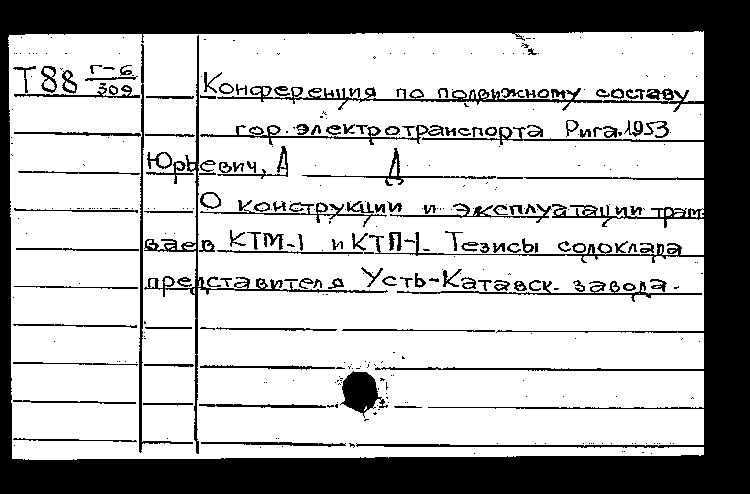 Т88 г-6/309 Конференция по подвижному составу
гор. электротранспорта Рига.1953
Юрьевич, А Д
О конструкции и эксплуатации трам-
ваев КТМ-1 и КТП-1. Тезисы содоклада
представителя Усть-Катавск. завода.